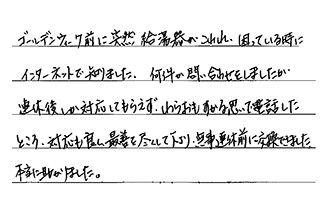 ゴールデンウィーク前に突然給湯器がこわれ、困っている時に
インターネットで知りました。何件か問い合わせをしましたが
連休後しか対応してもらえず、わらおもすがる思いで電話した
ところ、対応も良く最善を尽して下さり、無事連休前に交換できました。
本当に助かりました。